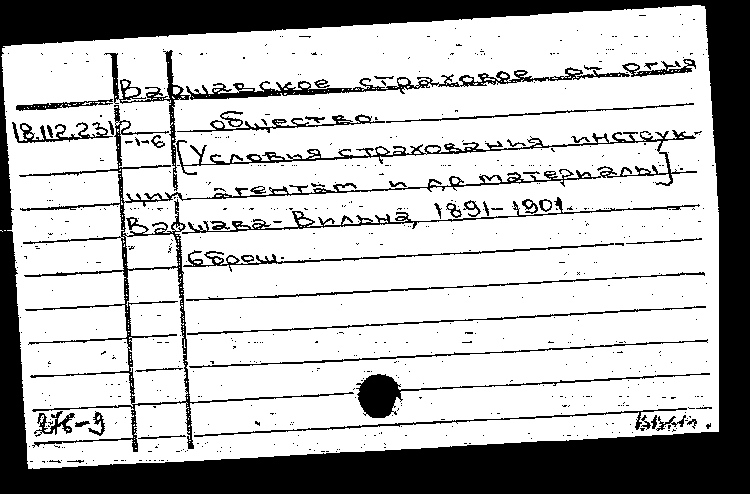 Варшавское страховое от огня
18.112.2312 общество.
-1-6 [Условия страхования, инструк-
ции агентам и др материалы].
Варшава-Вильна, 1891-1901.
6 брош.
276-9